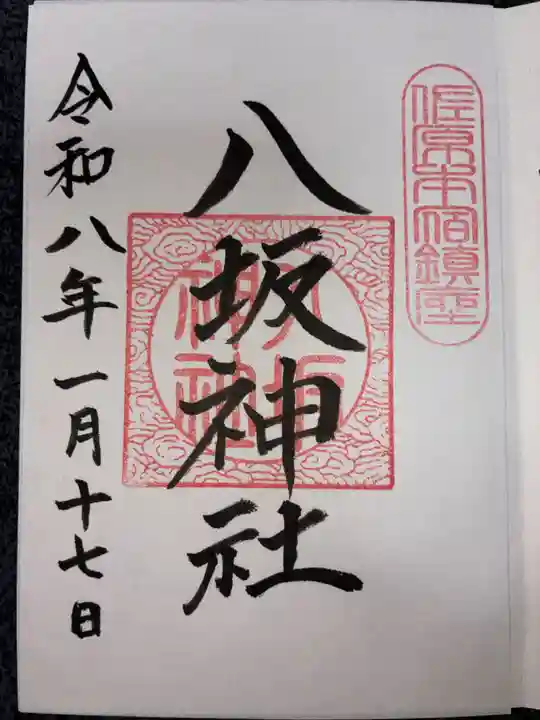 佐原本宿鎮座
八坂神社
令和八年一月十七日